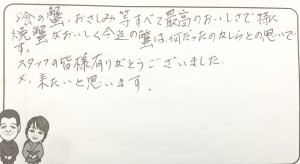 冷の蟹、おさしみ等すべて最高のおいしさで特に
焼蟹がおいしく今迄の蟹は、何だったのかしらとの思いで
す。
スタッフの皆様有りがとうございました。
又、来たいと思います。